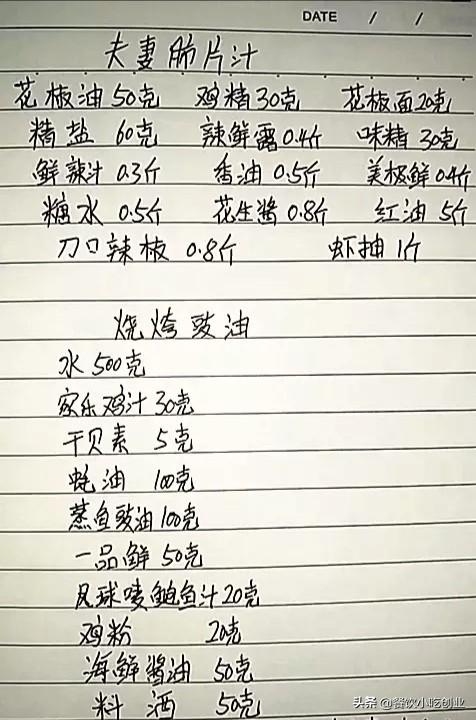 DATE / /
夫妻肺片汁
花椒油50克 鸡精30克 花椒面20克
精盐 60克 辣鲜露0.4斤 味精 30克
鲜辣汁 0.3斤 香油 0.5斤 美极鲜0.4斤
糖水 0.5斤 花生酱0.8斤 红油 5斤
刀口辣椒 0.8斤 虾抽1斤
烧烤豉油
水 500克
家乐鸡汁30克
干贝素 5克
蚝油 100克
蒸鱼豉油100克
一品鲜 50克
凤球唛鲍鱼汁20克
鸡粉 20克
海鲜酱油 50克
料酒 50克
头条 @餐饮小吃创业